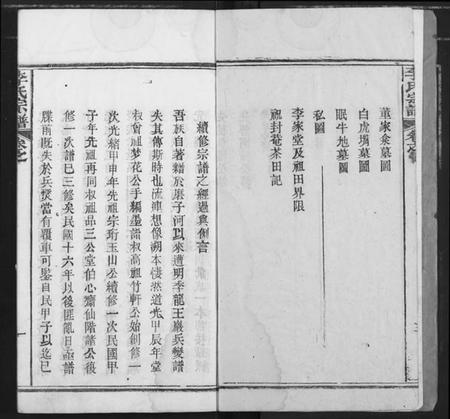 李氏宗譜
董家㘭墓圖
白虎塲墓圖
眠牛地墓圖
私圖
李家堂及祖田界限
祖封菴茶田記
續修宗譜之經過與創言
吾族自著籍於磨子河以來遭明季龍王巖兵變譜
失其傳斯時也流連想像溯本悽然道光甲辰年堂
叔曾祖夢花公手編墨譜叔高祖竹軒公始創修一
次光緒甲申年先祖宗珩玉山公續修一次民國甲
子年先祖再同叔祖品三公堂伯心齋仙階諸公復
修一次譜已三修矣民國十六年以後匪亂日亟譜
牒雨既失於兵燹當有覆車可鑒自民甲子以迄已
李氏宗譜
卷之
一